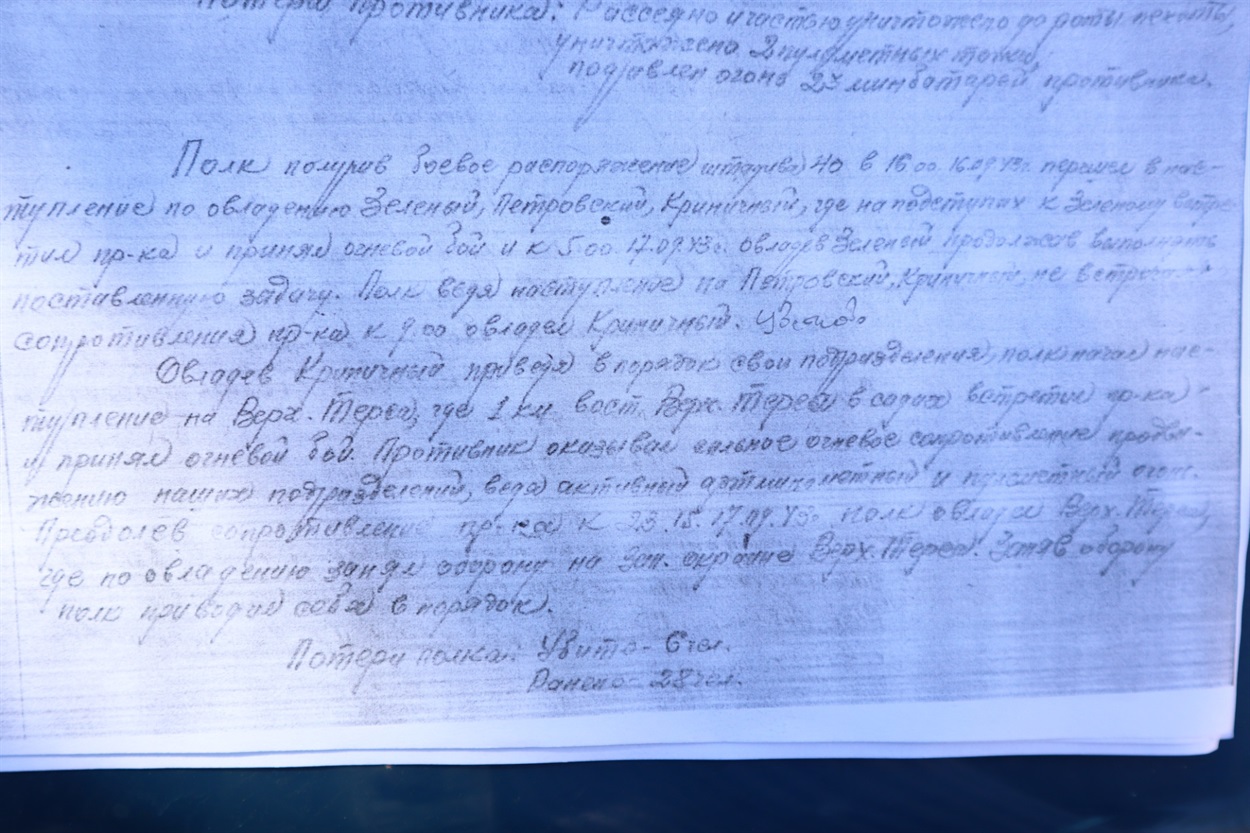 Потери противника: Рассеяно и частью уничтожено до роты пехоты,
уничтожено 2 пулеметных точки,
подавлен огонь 2х минбатарей противника.
Полк получив боевое распоряжение штадива 40 в 16.00 16.09.43г. перешел в нас-
тупление по овладению Зеленый, Петровский, Криничный, где на подступах к Зеленому встре-
тил пр-ка и принял огневой бой и к 5.00 17.09.43г. овладев Зеленый продолжал выполнять
поставленную задачу. Полк ведя наступление на Петровский, Криничный, не встречая
сопротивления пр-ка к 9.00 овладел Криничный.
Овладев Криничный приведя в порядок свои подразделения, полк начал нас-
тупление на Верх. Терса, где 1 км вост. Верх. Терса в садах встретил пр-ка
и принял огневой бой. Противник оказывал сильное огневое сопротивление продви-
жению наших подразделений, ведя активный артминометный и пулеметный огонь.
Преодолев сопротивление пр-ка к 23.15 17.09.43г. полк овладел Верх. Терса,
где по овладению занял оборону на зап. окраине Верх. Терса. Заняв оборону
полк приводил себя в порядок.
Потери полка: Убито - 6 чел.
Ранено - 28 чел.